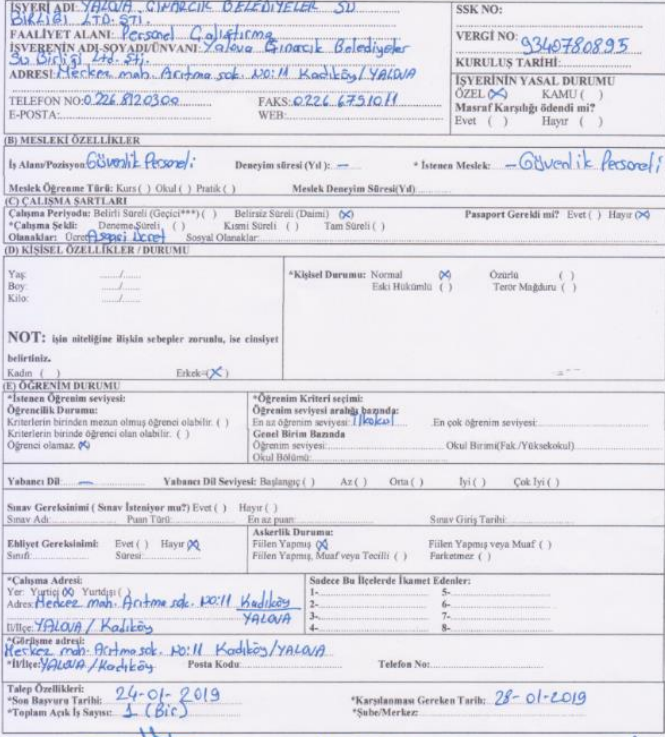 İŞYERİ ADI: YALOVA, ÇINARCIK BELEDİYELER SU
BİRLİĞİ LTD. ŞTİ.
FAALİYET ALANI: Personel Çalıştırma
İŞVERENİN ADI-SOYADI/ÜNVANI: Yalova Çınarcık Belediyeler
Su Birliği Ltd. Şti.
ADRESİ: Merkez mah. Arıtma sok. NO:11 Kadıköy/YALOVA
TELEFON NO: 0.226.8120300 FAKS: 0226 6751011
E-POSTA: WEB:
SSK NO:
VERGİ NO: 9340780895
KURULUŞ TARİHİ:
İŞYERİNİN YASAL DURUMU
ÖZEL (X) KAMU ( )
Masraf Karşılığı ödendi mi?
Evet ( ) Hayır ( )
(B) MESLEKİ ÖZELLİKLER
İş Alanı/Pozisyon: Güvenlik Personeli Deneyim süresi (Yıl ): — * İstenen Meslek: - Güvenlik Personeli
Meslek Öğrenme Türü: Kurs ( ) Okul ( ) Pratik ( ) Meslek Deneyim Süresi(Yıl)
(C) ÇALIŞMA ŞARTLARI
Çalışma Periyodu: Belirli Süreli (Geçici***) ( ) Belirsiz Süreli (Daimi) (X) Pasaport Gerekli mi? Evet ( ) Hayır (X)
*Çalışma Şekli: Deneme Süreli ( ) Kısmi Süreli ( ) Tam Süreli ( )
Olanaklar: Ücret: Asgari Ücret Sosyal Olanaklar:
(D) KİŞİSEL ÖZELLİKLER / DURUMU
Yaş: ....../......
Boy: ....../......
Kilo: ....../......
NOT: işin niteliğine ilişkin sebepler zorunlu, ise cinsiyet
belirtiniz.
Kadın ( ) Erkek=(X)
*Kişisel Durumu: Normal (X) Özürlü ( )
Eski Hükümlü ( ) Terör Mağduru ( )
(E) ÖĞRENİM DURUMU
*İstenen Öğrenim seviyesi:
Öğrencilik Durumu:
Kriterlerin birinden mezun olmuş öğrenci olabilir. ( )
Kriterlerin birinde öğrenci olan olabilir. ( )
Öğrenci olamaz. (X)
*Öğrenim Kriteri seçimi:
Öğrenim seviyesi aralığı bazında:
En az öğrenim seviyesi: İlkokul En çok öğrenim seviyesi:
Genel Birim Bazında
Öğrenim seviyesi: Okul Birimi(Fak./Yüksekokul)
Okul Bölümü:
Yabancı Dil: — Yabancı Dil Seviyesi: Başlangıç ( ) Az ( ) Orta ( ) İyi ( ) Çok İyi ( )
Sınav Gereksinimi ( Sınav İsteniyor mu?) Evet ( ) Hayır ( )
Sınav Adı: Puan Türü: En az puan: Sınav Giriş Tarihi:
Ehliyet Gereksinimi: Evet ( ) Hayır (X)
Sınıfı: Süresi:
Askerlik Durumu:
Fiilen Yapmış (X) Fiilen Yapmış veya Muaf ( )
Fiilen Yapmış, Muaf veya Tecilli ( ) Farketmez ( )
*Çalışma Adresi:
Yer: Yurtiçi (X) Yurtdışı ( )
Adres: Merkez mah. Arıtma sok. NO:11 Kadıköy
YALOVA
İl/İlçe: YALOVA / Kadıköy
Sadece Bu İlçelerde İkamet Edenler:
1- 5-
2- 6-
3- 7-
4- 8-
*Görüşme adresi:
Merkez mah. Arıtma sok. NO:11 Kadıköy/YALOVA
*İl/İlçe: YALOVA / Kadıköy Posta Kodu: Telefon No:
Talep Özellikleri:
*Son Başvuru Tarihi: 24-01-2019 *Karşılanması Gereken Tarih: 28-01-2019
*Toplam Açık İş Sayısı: 1 (Bir) *Şube/Merkez: